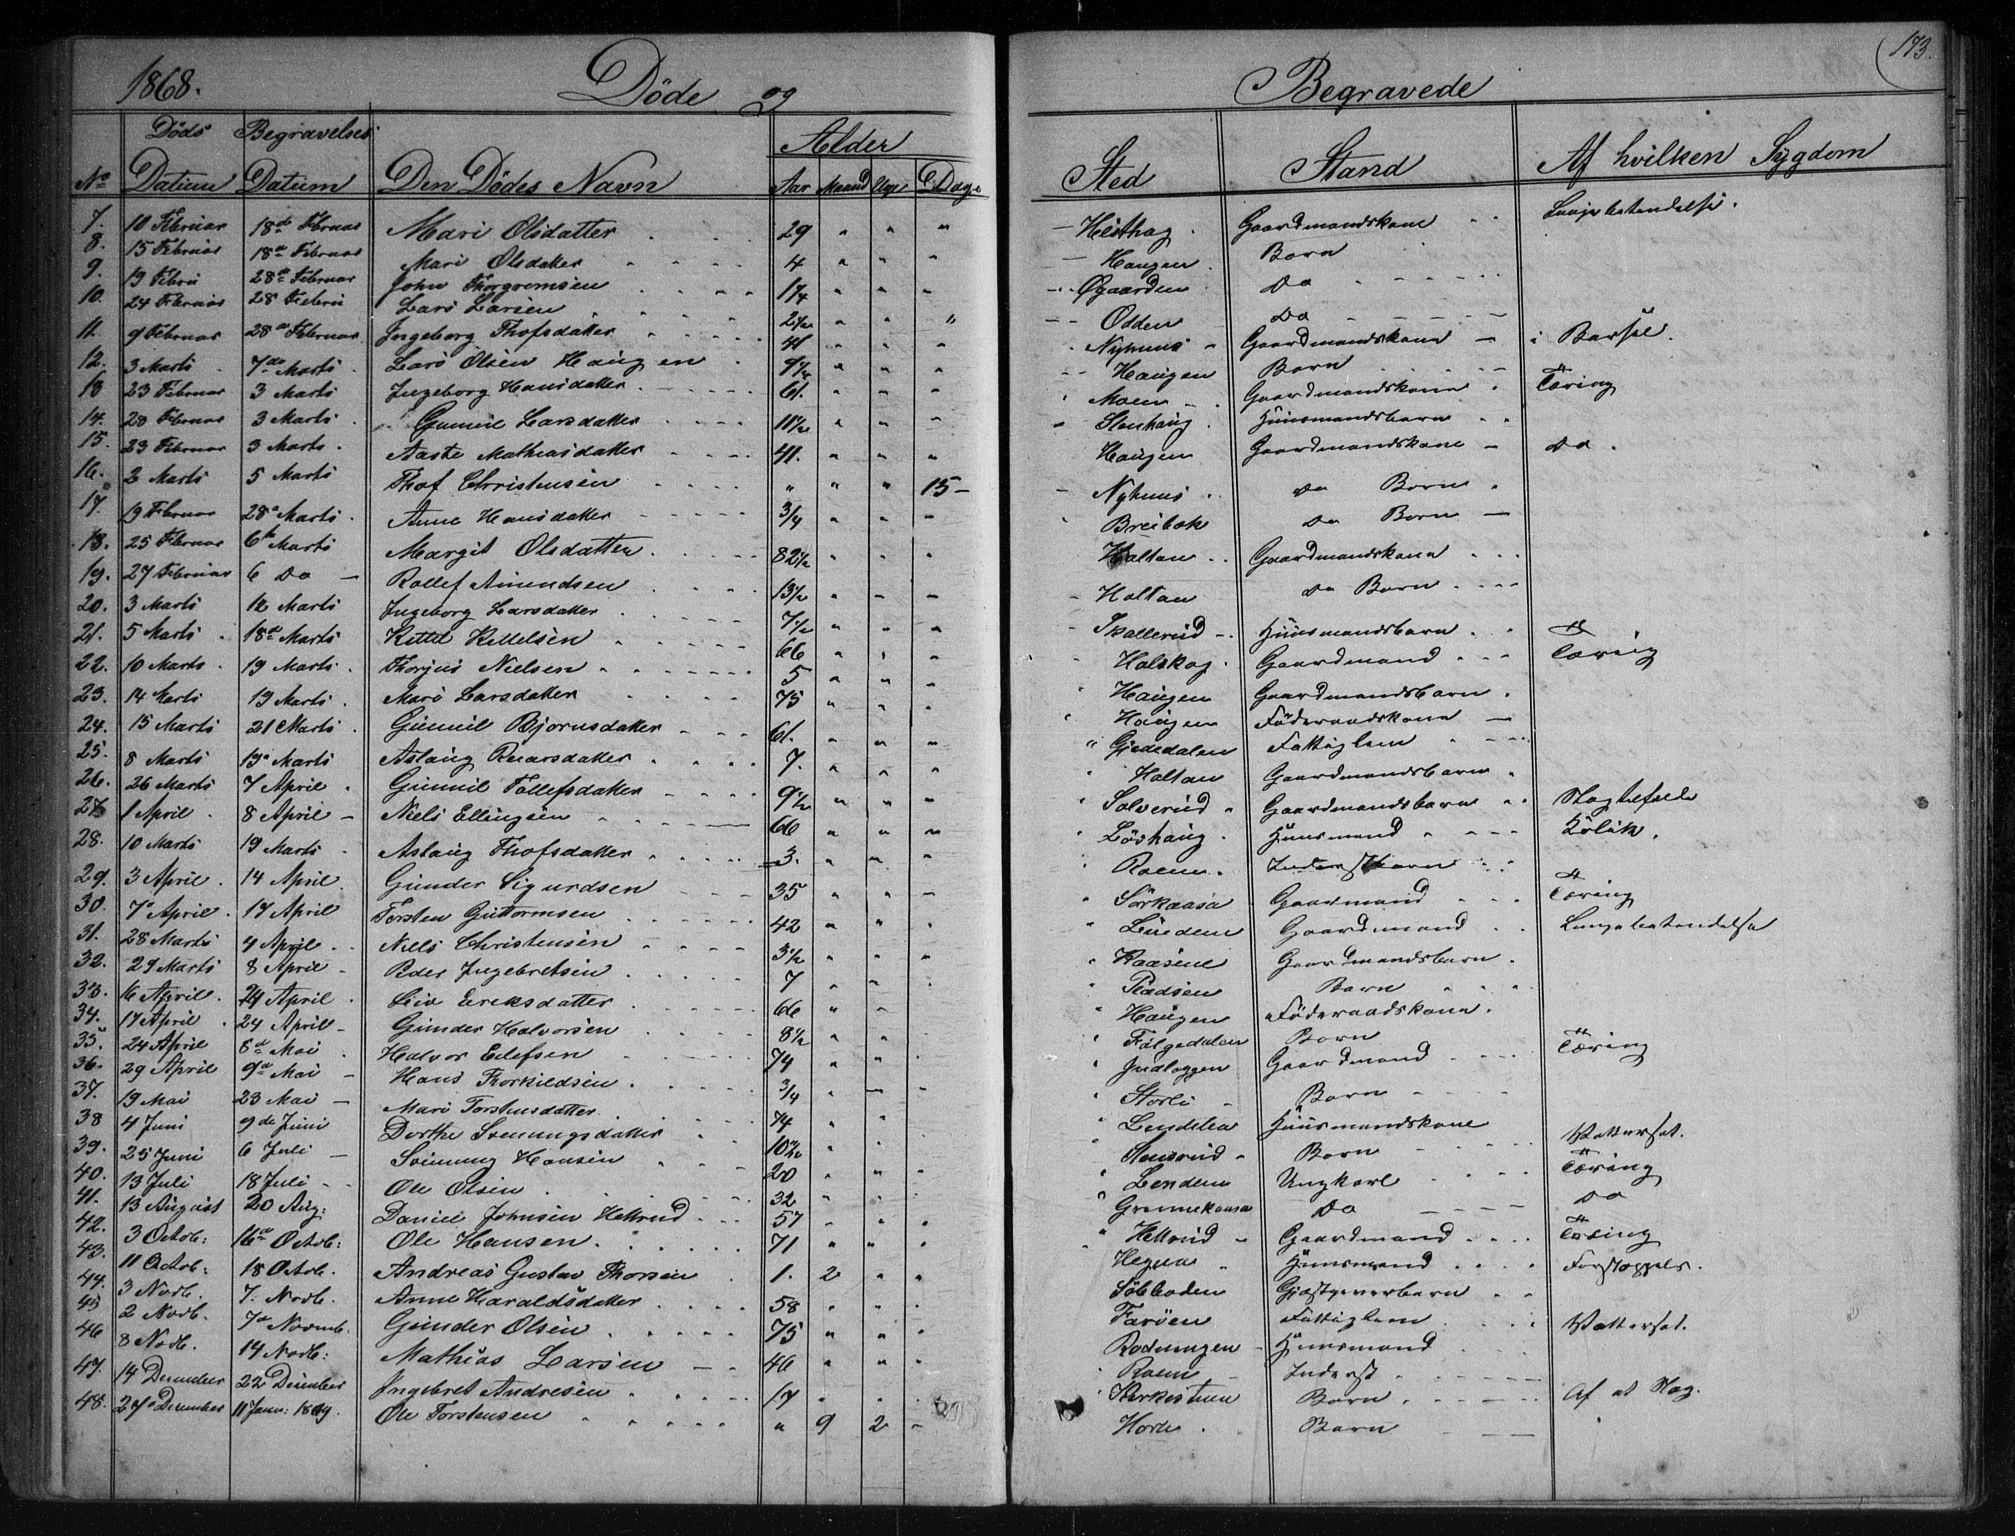 1868. Döde og Begravede 173.
No Döds Datum Begravelses Datum Den Dödes Navn Alder Aar Maaned Uge Dage Sted Stand Af hvilken Sygdom
7. 10 Februar 18de Februar Mari Olsdatter 29 " " " Hesthag Gaardmandskone Lungebetendelse.
8. 15 Februar 18de Februar Mari Olsdatter 4 " " " Haugen Barn
9. 19 Febru 28de Februar John Thorgrimsen 1 1/4 " " " Øgaarden Do
10. 24 Februar 28 Febru Lars Larsen 2 1/2 " " " Odden Do
11. 9 Februar 28de Februar Ingeborg Thofsdatter 41 " " " Nyhuus Gaardmandskone i Barsel.
12. 3 Marts 7de Marts Lars Olsen Haugen " " " Haugen Barn
13 23 Februar 3 Marts Ingeborg Hansdatter 61. " " " Moen Gaardmandskone Tæring
14. 20 Februar 3 Marts Gunnil Larsdatter 11 1/2 " " " Stenhaug Huusmandsbarn
15. 23 Februar 3 Marts Aaste Mathiasdatter 41. " " " Haugen Gaardmandskone Do.
16. 2 Marts 5 Marts Thof Christensen " " " 15 Nyhuus do Barn
17. 19 Februar 28 Marts Anne Hansdatter 3/4 " " " Breibæk do Barn
18. 25 Februar 6te Marts Margit Olsdatter 82 1/2 " " " Holtan Gaardmandskone
19. 27 Februar 6 Do Rollef Amundsen 13 1/2 " " " Holtan do Barn
20. 3 Marts 12 Marts Ingeborg Larsdatter 7 1/2 " " " Skollerud Huusmandsbarn
21. 5 Marts 18de Marts Kittil Kittelsen 66 " " " Holskog Gaardmand Tæring
22. 10 Marts 19 Marts Thorjus Nielsen 5 " " " Haugen Gaardmandsbarn
23. 14 Marts 19 Marts Mari Larsdatter 75 " " " Haugen Föderaadskone
24. 15 Marts 21 Marts Gunnil Bjornsdatter 61. " " " Gjededalen Fattiglem
25. 8 Marts 19 Marts Aslaug Knarsdatter 7. " " " Holtan Gaardmandsbarn
26. 26 Marts 7 April Gunnil Tollefsdatter 9 1/2 " " " Solverud Gaardmandsbarn
27 1 April 8 April Niels Ellingsen 66 " " " Løvhaug Huusmand Kolik.
28. 10 Marts 19 Marts Aslaug Thofsdatter 3. " " " Roem Inderstbarn
29. 3 April 14 April Gunder Sigurdsen 35 " " " Sørkaasa Gaardmand Tæring
30. 7 April 17 April Torsten Guttormsen 42 " " " Linden Gaardmand Lungebetendelse
31. 28 Marts 4 April Niels Christensen 3 1/2 " " " Kaasene Gaardmandsbarn
32. 29 Marts 8 April Peder Ingebretsen 7 Barn
33. 16 April 24 April Liv Eriksdatter 66 " " Haugen Föderaadskone
34. 17 April 24 April Gunder Halvorsen 8 1/2 " " Følgedalen Barn
35. 24 April 8de Mai Halvor Eilefsen 74 " " Indloggen Gaardmand Tæring
36. 29 April 9de Mai Hans Thorkildsen 3/4 " " Storli Barn
37. 19 Mai 23 Mai Mari Torstensdatter 74 " " Huusmandskone
38 4 Juni 9de Juni Dorthe Sveinungsdatter 10 1/2 " Barn Vattersot.
39. 25 Juni 6 Juli Sveinung Hansen 20 " " " Lendem Ungkarl Tæring
40. 13 Juli 18 Juli Ole Olsen 32 " " Grennekaasa Do Do
41. 13 August 20 Aug: Daniel Johnsen Hettrud 57 " " " Hettrud Gaardmand Tæring
42. 3 Octob: 16de Octob: Ole Hansen 71 " " " Hegna Huusmand Forstoppels.
43. 11 Octob: 18 Octob. Andreas Gustav Thorsen 1. 2 " " Sölboden Gjæstgeverbarn
44. 3 Novb. 7. Novb. Anne Haraldsdatter 58 " " " Faröen Fattiglem Vattersot.
45 2 Novb. 7de Novemb. Gunder Olsen 75 " " " Rodningen Huusmand
46 8 Novb. 14 Novb: Mathias Larsen 46 " " " Roem Inderst
47. 14 December 22 December Ingebret Andresen 17 " " " Barn Af et Slag.
48. 27 December 11 Janu: 1869. Ole Torstensen " 9 2 " Horte Barn